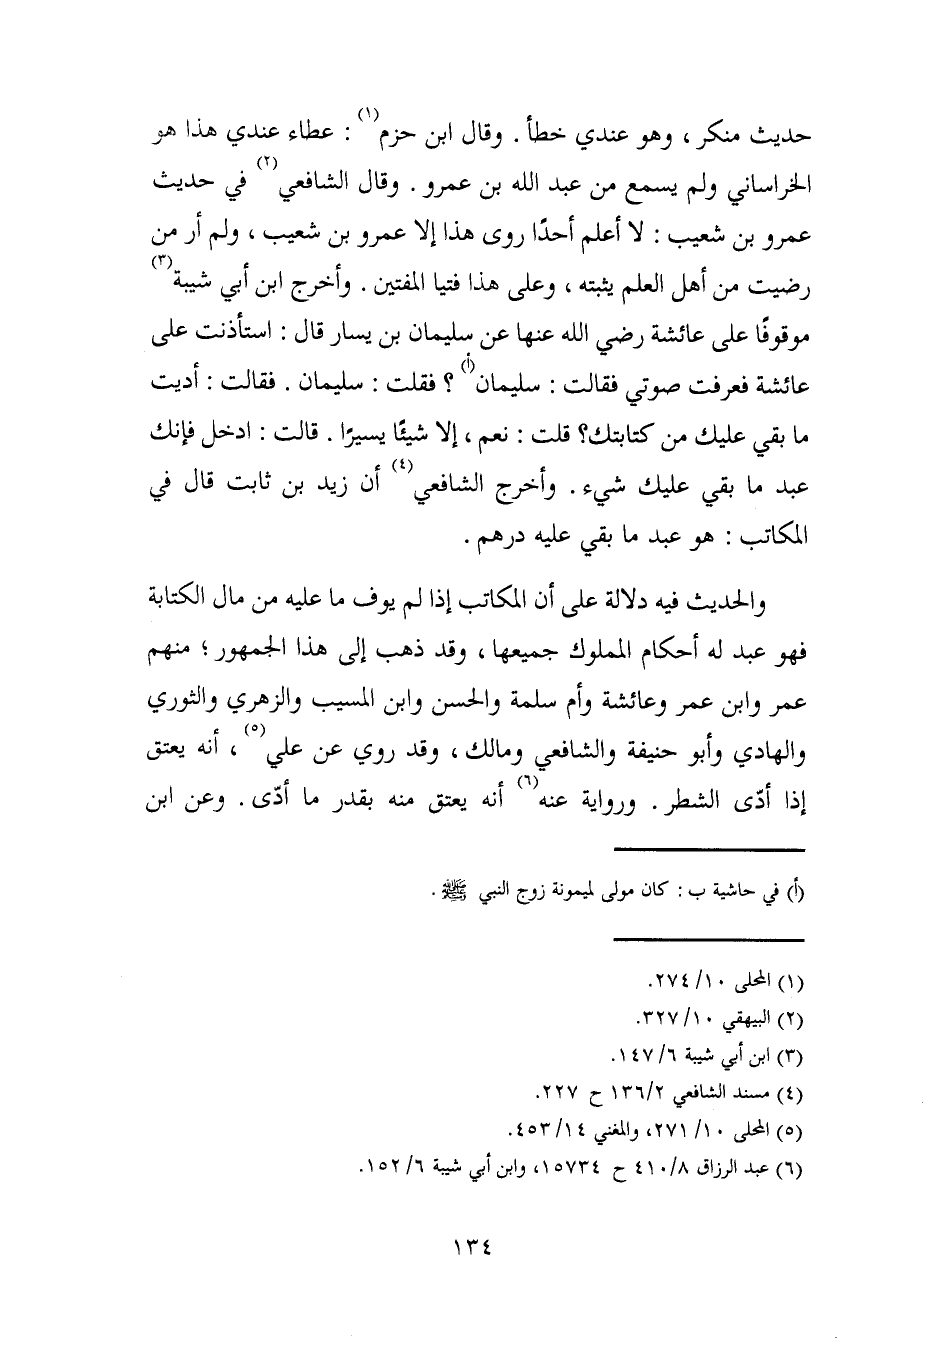 حديث منكر ، وهو عندي خطأ . وقال ابن حزم(١) : عطاء عندي هذا هو
الخراساني ولم يسمع من عبد الله بن عمرو . وقال الشافعي(٢) في حديث
عمرو بن شعيب : لا أعلم أحدًا روى هذا إلا عمرو بن شعيب ، ولم أر من
رضيت من أهل العلم يثبته ، وعلى هذا فتيا المفتين . وأخرج ابن أبي شيبة(٣)
موقوفًا على عائشة رضي الله عنها عن سليمان بن يسار قال : استأذنت على
عائشة فعرفت صوتي فقالت : سليمان(أ) ؟ فقلت : سليمان . فقالت : أديت
ما بقي عليك من كتابتك؟ قلت : نعم ، إلا شيئًا يسيرًا . قالت : ادخل فإنك
عبد ما بقي عليك شيء . وأخرج الشافعي(٤) أن زيد بن ثابت قال في
المكاتب : هو عبد ما بقي عليه درهم .
والحديث فيه دلالة على أن المكاتب إذا لم يوف ما عليه من مال الكتابة
فهو عبد له أحكام المملوك جميعها ، وقد ذهب إلى هذا الجمهور ؛ منهم
عمر وابن عمر وعائشة وأم سلمة والحسن وابن المسيب والزهري والثوري
والهادي وأبو حنيفة والشافعي ومالك ، وقد روي عن علي(٥) ، أنه يعتق
إذا أدّى الشطر . ورواية عنه(٦) أنه يعتق منه بقدر ما أدّى . وعن ابن
(أ) في حاشية ب : كان مولى لميمونة زوج النبي ﷺ .
(١) المحلى ١٠/ ٢٧٤.
(٢) البيهقي ١٠/ ٣٢٧.
(٣) ابن أبي شيبة ٦/ ١٤٧.
(٤) مسند الشافعي ٢/ ١٣٦ ح ٢٢٧.
(٥) المحلى ١٠/ ٢٧١، والمغني ١٤/ ٤٥٣.
(٦) عبد الرزاق ٨/ ٤١٠ ح ١٥٧٣٤، وابن أبي شيبة ٦/ ١٥٢.
١٣٤